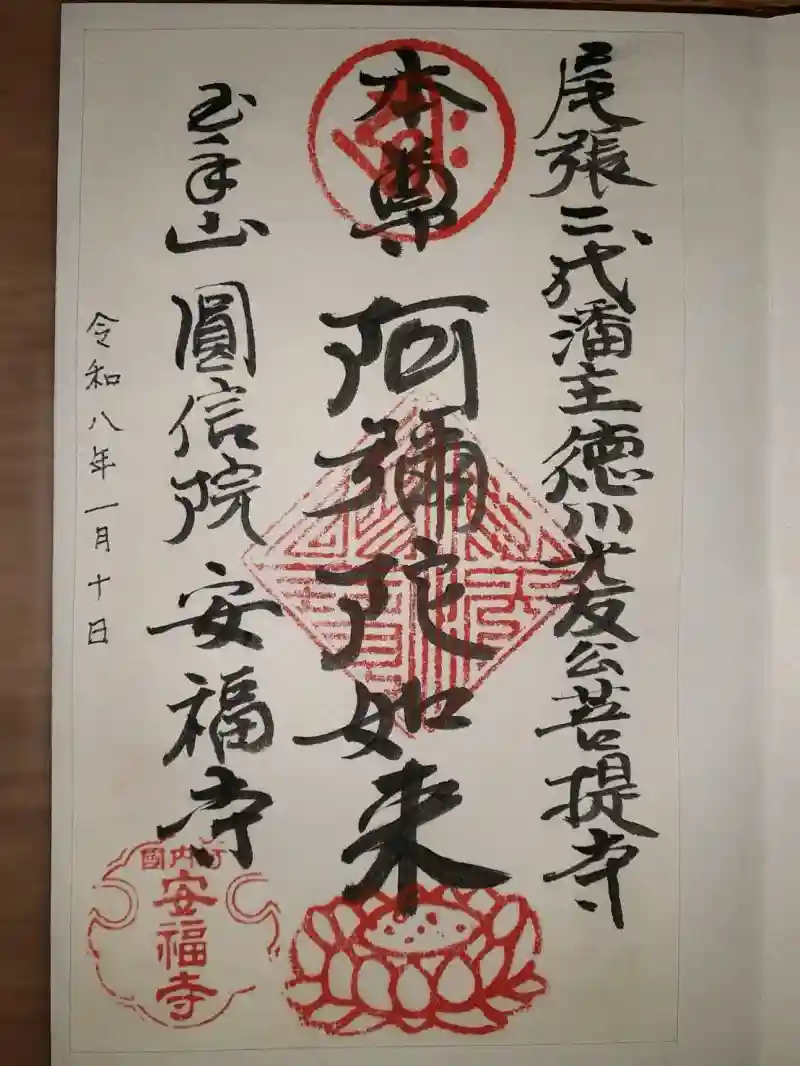 尾張二代潘主徳川光友公菩提寺
本尊 阿彌陀如来
玉手山 圓信院 安福寺
令和八年一月十日
河内國
安福寺